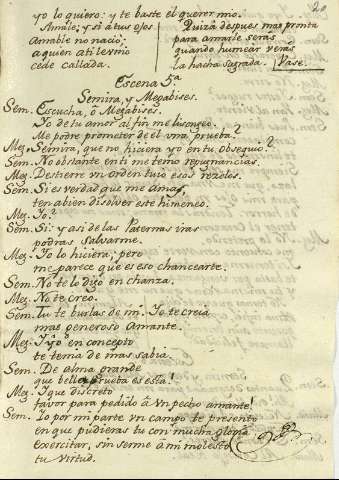 20
yo lo quiero: y te baste el querer mio.
Amale; y si á tus ojos
Amable no nacio;
aquien ati le vnio
cede callada.
Quizá despues mas pronta
para amarle serás
quando humear verás
la hacha sagrada. Vase.
Escena 5.ª
Semira, y Megabises.
Sem. Escucha, ô Megabises.
Yo de tu amor al fin me lisongeo.
Me podre prometer de êl vna prueba?
Meg. Semira, que no hiciera yo en tu obsequio?
Sem. No obstante en ti me temo repugnancias.
Meg. Destierre vn orden tuyo esos rezelos.
Sem. Si es verdad que me amas,
tu también disolver este himeneo.
Meg. Yo?
Sem. Si: y asi de las Paternas iras
podras salvarme.
Meg. Yo lo hiciera; pero
me parece que es eso chancearte.
Sem. No te lo digo en chanza.
Meg. No te creo.
Sem. Tu te burlas de mi. Yo te creia
mas generoso amante.
Meg. Y yo en concepto
te tenia de mas sabia.
Sem. De alma grande
que bella prueba es esta!
Meg. Y que discreto
favor para pedido â vn pecho amante!
Sem. Yo por mi parte vn campo te presento
en que pudieras tu con mucha gloria
exercitar, sin serme â mi molesto
tu virtud.